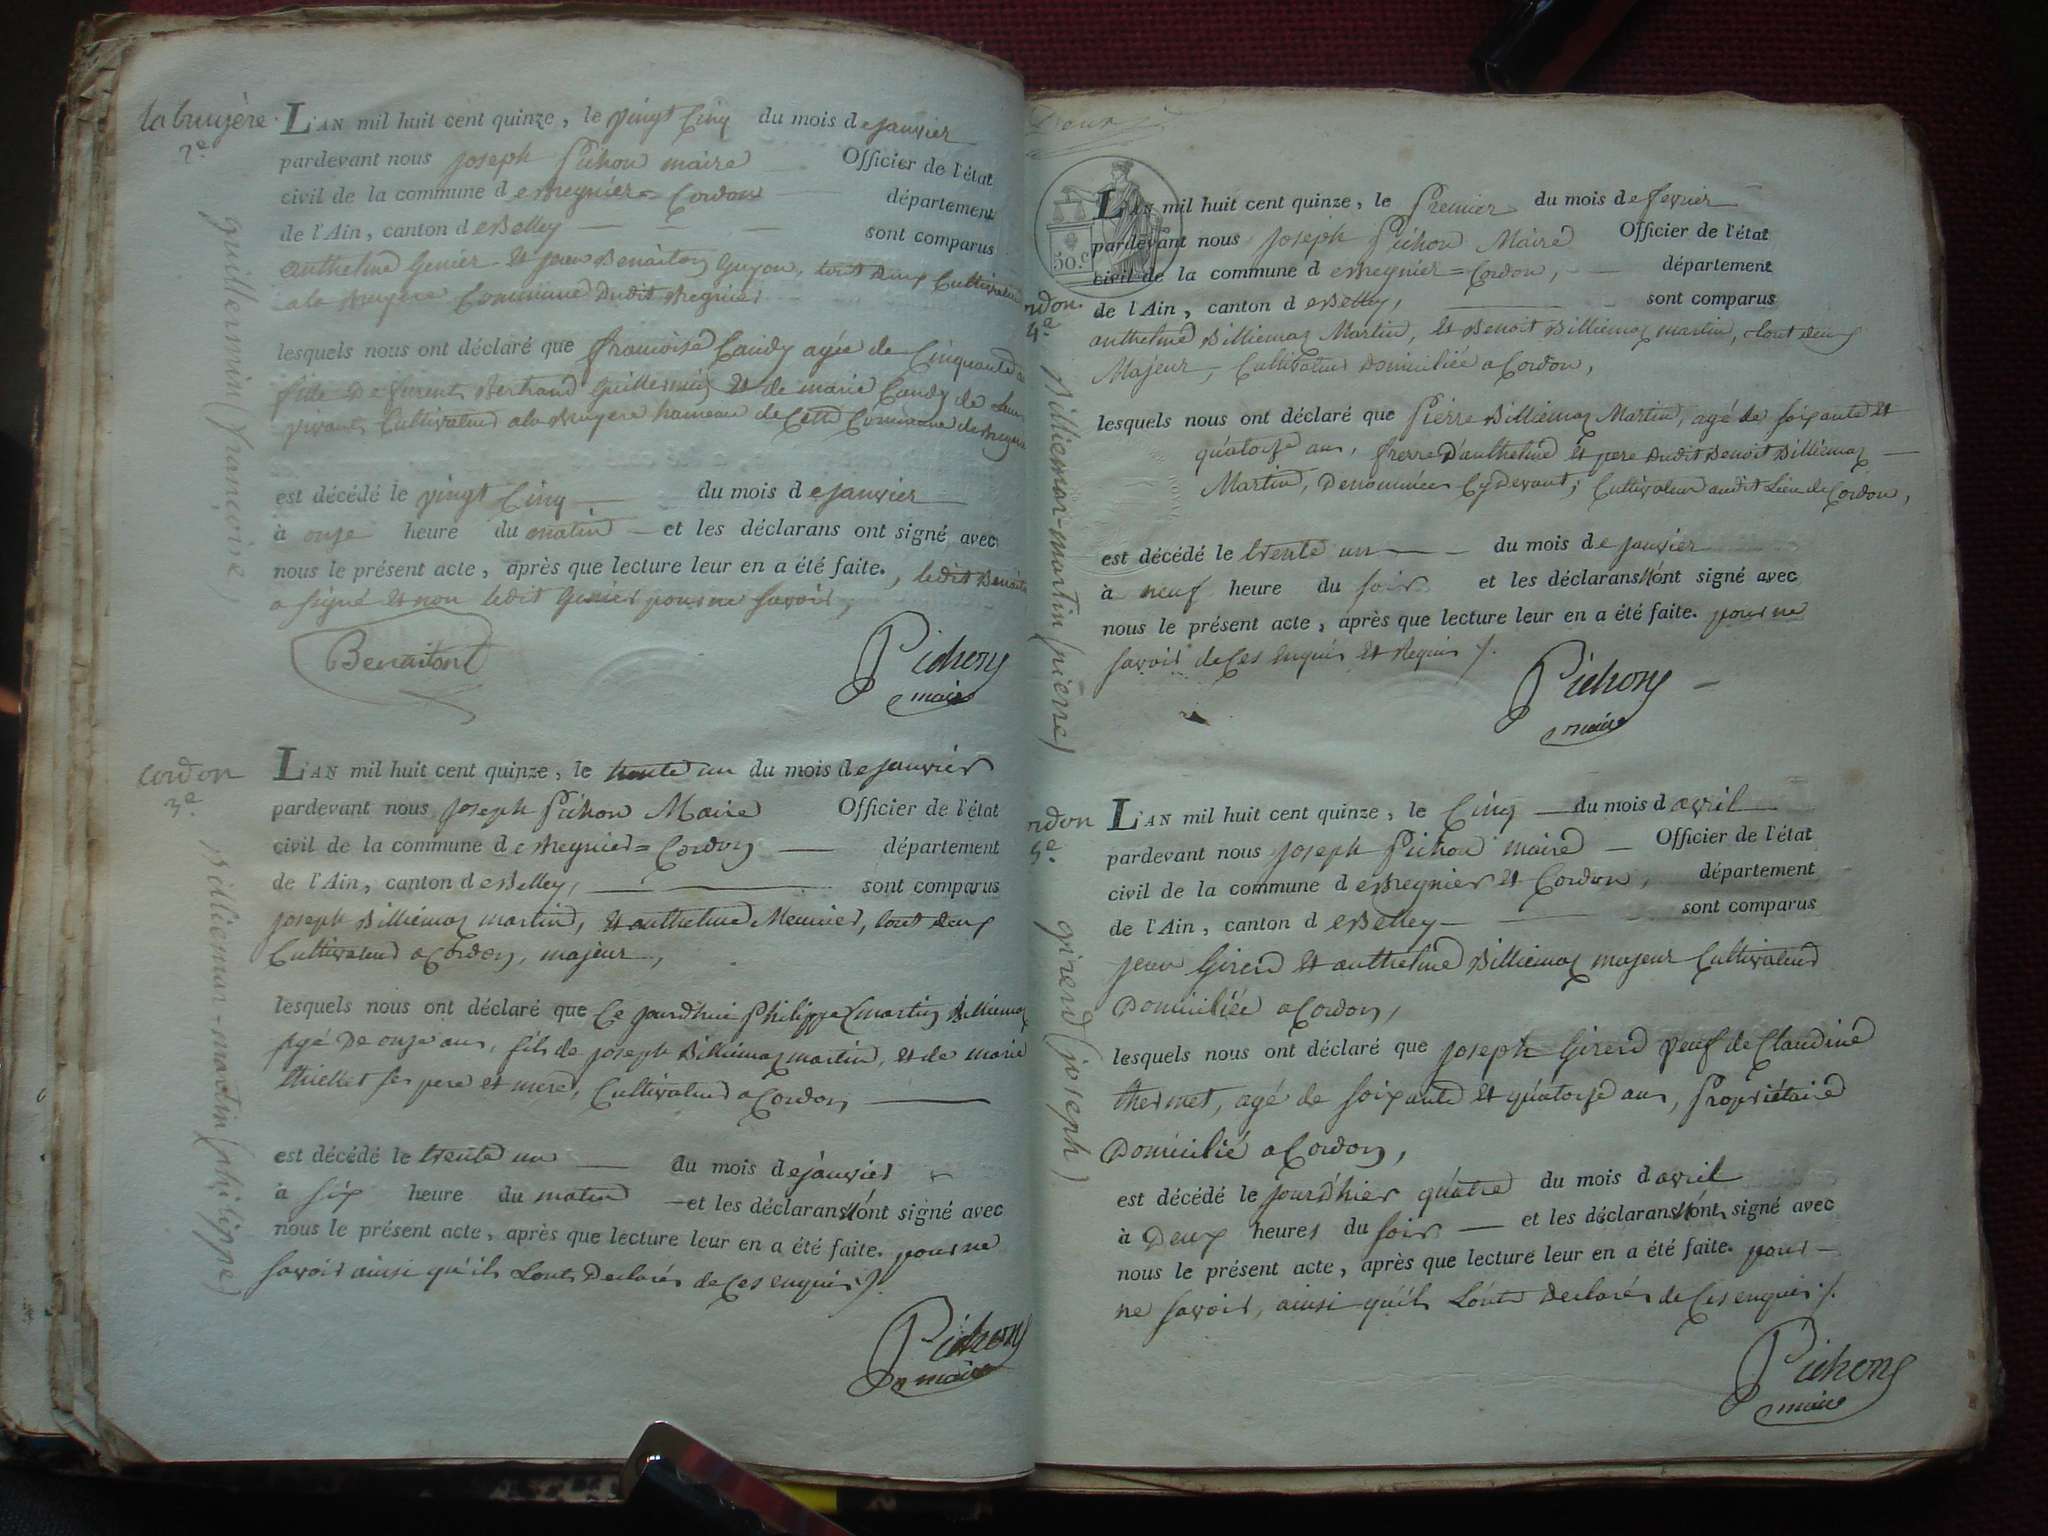 labruyère
2e.
guillermin (françoise)
L'AN mil huit cent quinze, le vingt Cinq du mois de janvier
pardevant nous joseph Pichon maire Officier de l'état
civil de la commune de Bregnier = Cordon département
de l'Ain, canton de Belley sont comparus
anthelme Genier et jean Benaiton Guyon, tout deux Cultivateur
a la Bruyere Commune Dudit Bregnier
lesquels nous ont déclaré que francoise Candy agée de Cinquante
fille De furent Bertrand Guillermin et de marie Candy de Leur
vivant Cultivateur a la Bruyere hameau de Cette Commune de Bregnier
est décédé le vingt Cinq du mois de janvier
à onze heure du matin et les déclarans ont signé avec
nous le présent acte, après que lecture leur en a été faite., ledit Benaiton
a signé et non ledit Genier pour ne savoir,
Benaitont
Pichon
maire
Cordon
3e.
Billiemaz-martin (philippe)
L'AN mil huit cent quinze, le trente un du mois de janvier
pardevant nous joseph Pichon Maire Officier de l'état
civil de la commune de Bregnier = Cordon département
de l'Ain, canton de Belley, sont comparus
joseph Billiemaz martin, et anthelme Meunier, tout deux
Cultivateur a Cordon, majeur,
lesquels nous ont déclaré que Ce jourd'hui Philippe martin Billiemaz
agé De onze ans, fils de joseph Billiemaz martin, et de marie
thiellet ses pere et mere, Cultivateur a Cordon
est décédé le trente un du mois de janvier
à six heure du matin et les déclarans n'ont signé avec
nous le présent acte, après que lecture leur en a été faite. pour ne
savoir ainsi qu'ils L'ont Declarés de Ces enquis /.
Pichon
maire
50.c
rdon.
4e.
Billiemaz-martin (pierre)
L'AN mil huit cent quinze, le Premier du mois de fevrier
pardevant nous Joseph Pichon Maire Officier de l'état
civil de la commune de Bregnier = Cordon, département
de l'Ain, canton de Belley, sont comparus
anthelme Billiemaz Martin, et Benoit Billiemaz martin, tout deux
Majeur, Cultivateur Domiciliée a Cordon,
lesquels nous ont déclaré que Pierre Billiemaz Martin, agé de soixante et
quatorze ans, frerre D'anthelme et pere Dudit Benoit Billiemaz
Martin, Denommées Cy Devant, Cultivateur audit Lieu de Cordon,
est décédé le trente un du mois de janvier
à neuf heure du soir et les déclarans n'ont signé avec
nous le présent acte, après que lecture leur en a été faite. pour ne
savoir de Ces enquis et Requis /.
Pichon
maire
rdon
5e.
girerd (joseph)
L'AN mil huit cent quinze, le Cinq du mois d'avril
pardevant nous joseph Pichon maire Officier de l'état
civil de la commune de Bregnier et Cordon, département
de l'Ain, canton de Belley sont comparus
jean Girerd et anthelme Billiemaz majeur Cultivateur
Domiciliée a Cordon,
lesquels nous ont déclaré que joseph Girerd veuf de Claudine
thermet, agé de soixante et quatorze ans, Propriétaire
Domicilié a Cordon,
est décédé le jourd'hier quatre du mois d'avril
à Deux heures du soir et les déclarans n'ont signé avec
nous le présent acte, après que lecture leur en a été faite. pour
ne savoir, ainsi qu'ils L'ont Declarés de Ces enquis /.
Pichon
maire